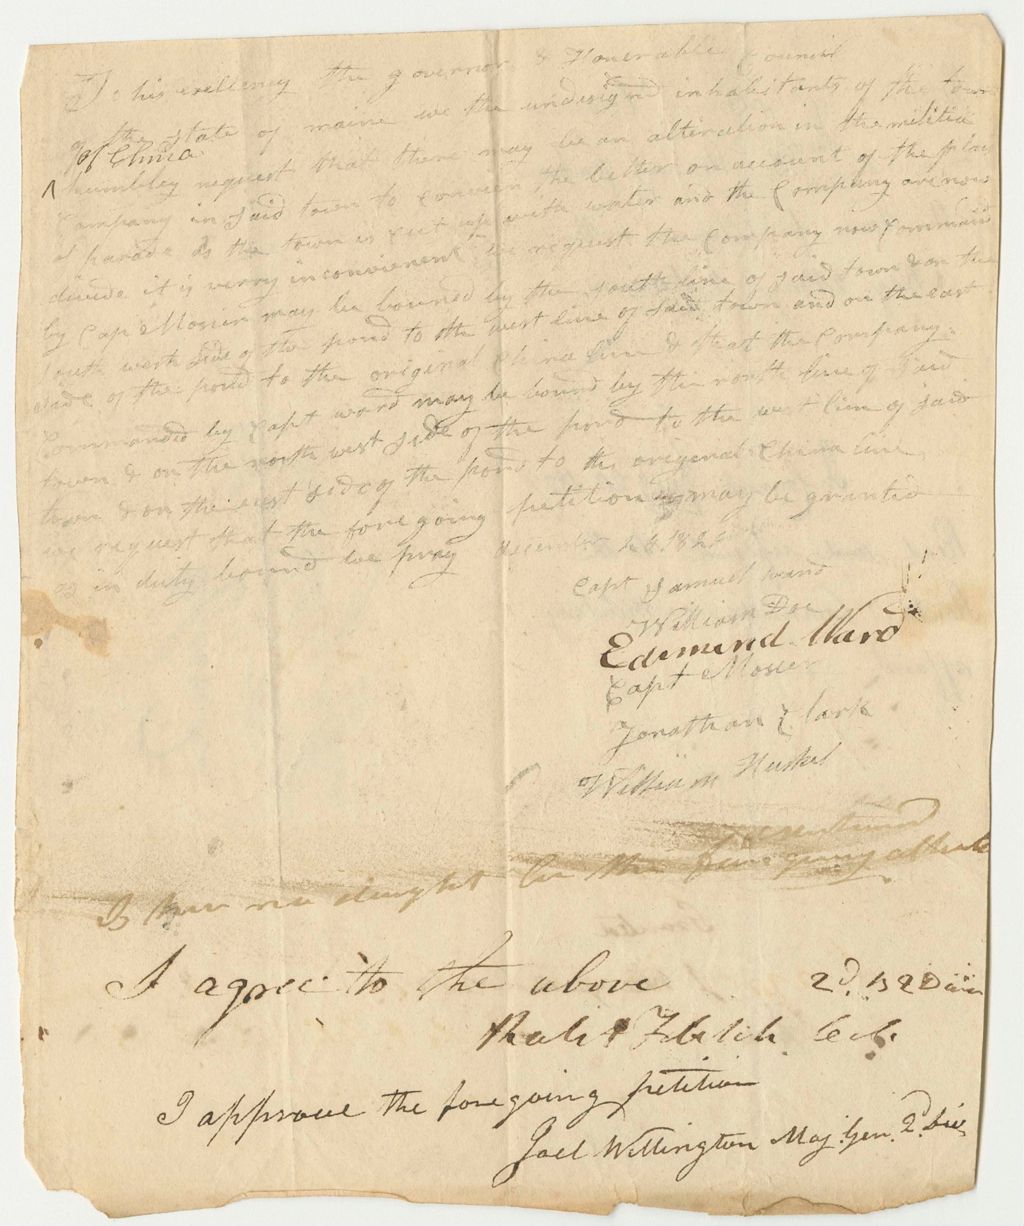 To his exellency the governor & Honerable Council
of the state of maine we the undesignd inhabitants of the town
of China
humbley request that there may be an alteration in the militia
Company in said town to the better on account of the place
of parade as the town is cut up with water and the Company are now
divide it is verry inconvienent we request the Company now Command
by Cap Mosier may be bouned by the south line of said town & on the
south west side of the pond to the west line of said town and on the east
side of the pond to the original China line & that the Company
Commanded by Capt ward may be bound by the north line of said
town & on the north west side of the pond to the west line of said
town & on the east side of the pond to the original China line
we request that the foregoing petition may be granted
as in duty bound we pray december
Capt Samuel ward
William Doe
Edmund Ward
Capt Mosier
Jonathan Clark
William Haskel
the foregoing
I agree to the above 2d. B 2 Divn
I approve the foregoing petition
Joel Wellington Maj. Gen. 2d Div